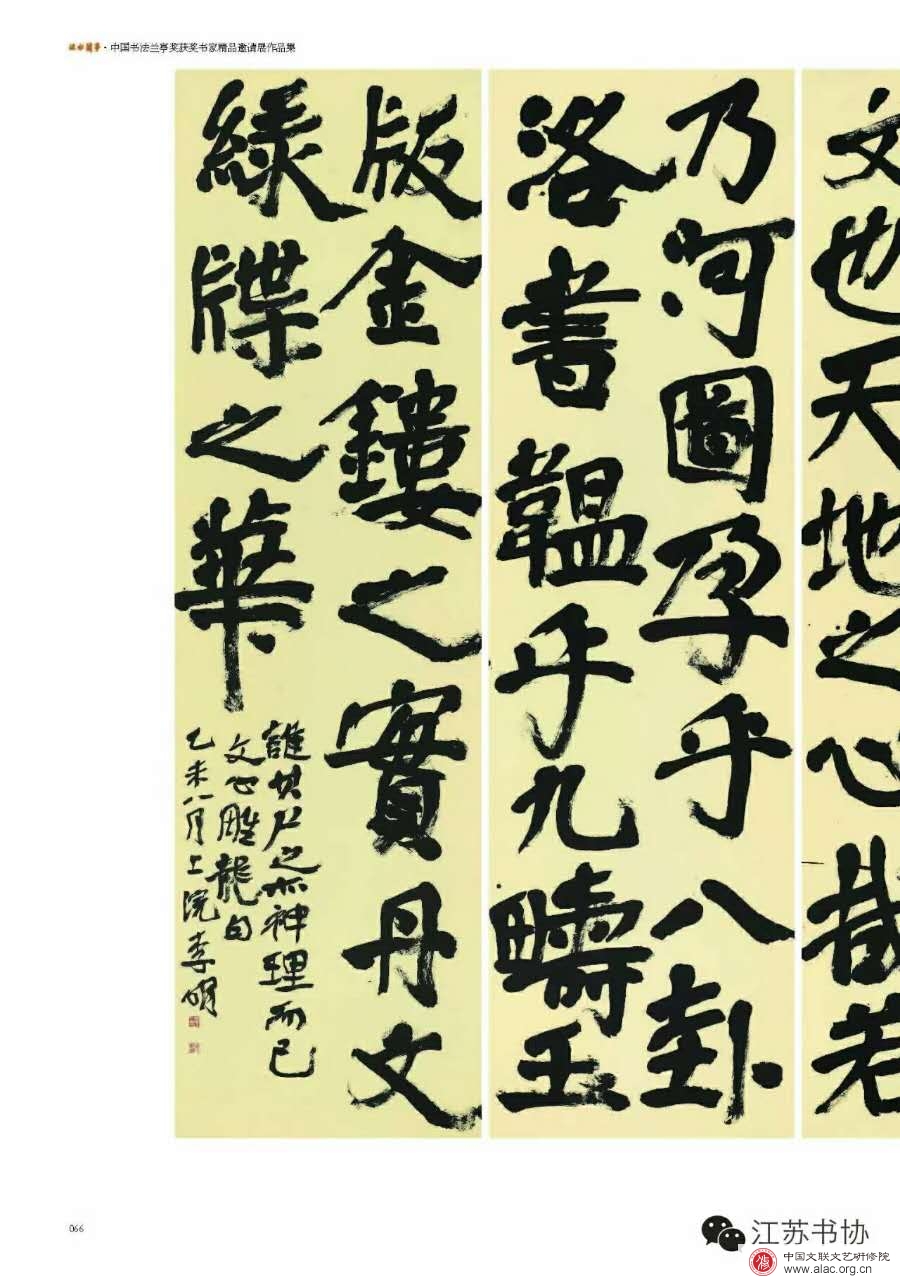 ·中国书法兰亭奖获奖书家精品邀请展作品集
文也天地之心哉若
乃河圖孕乎八卦
洛書韞乎九疇玉
版金鏤之實丹文
綠牒之華
誰其尸之亦神理而已
文心雕龍句
乙未八月上浣李明
066
江苏书协
中国文联文艺研修院
www.alac.org.cn